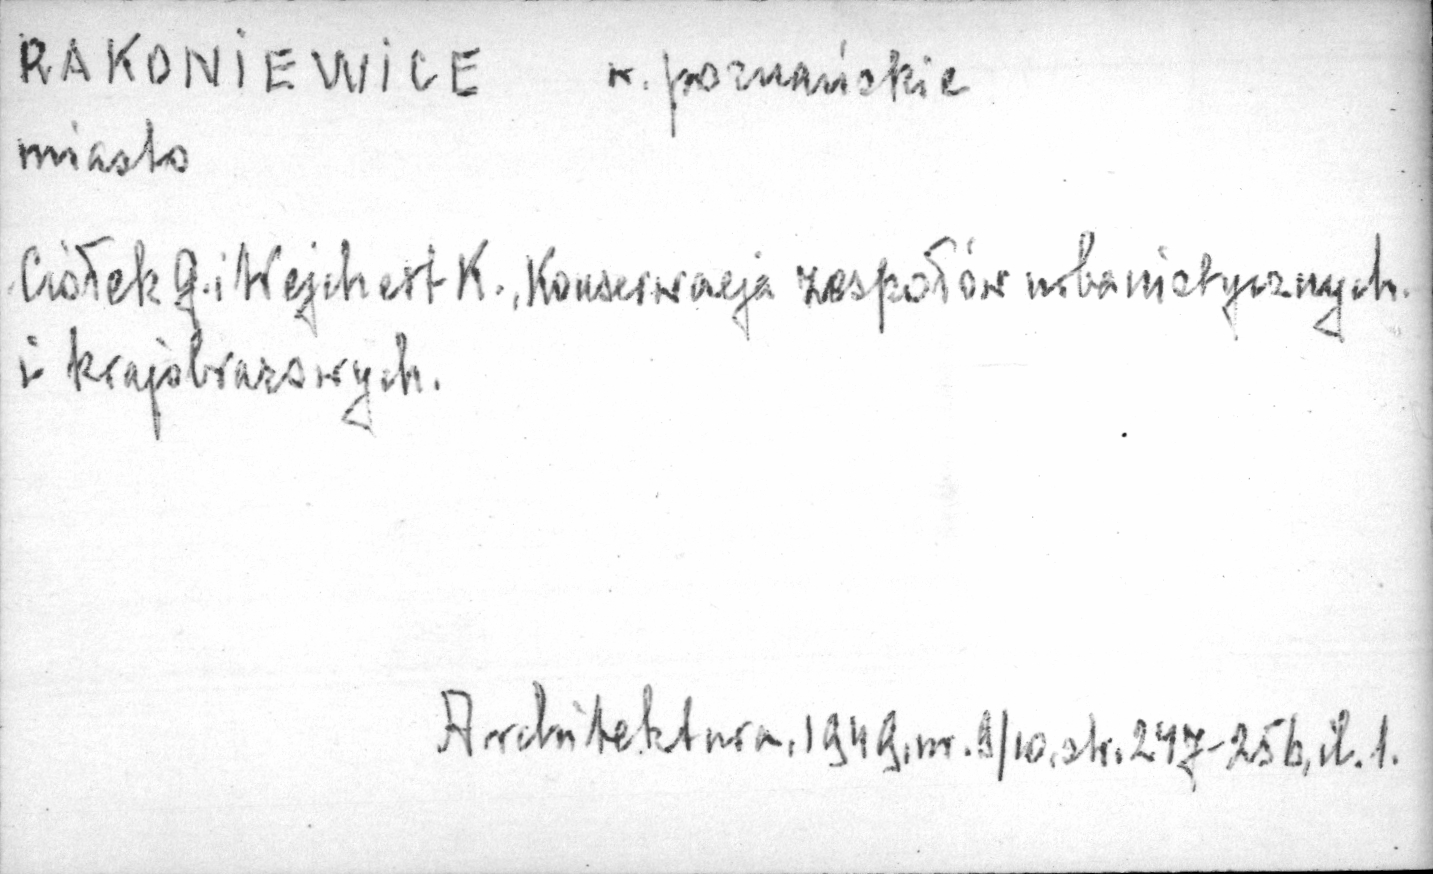 RAKONIEWICE w. poznańskie
miasto
Ciołek G. i Wejchert K., Konserwacja zespołów urbanistycznych
i krajobrazowych.
Architektura, 1949, nr. 9/10, str. 247-256, il. 1.